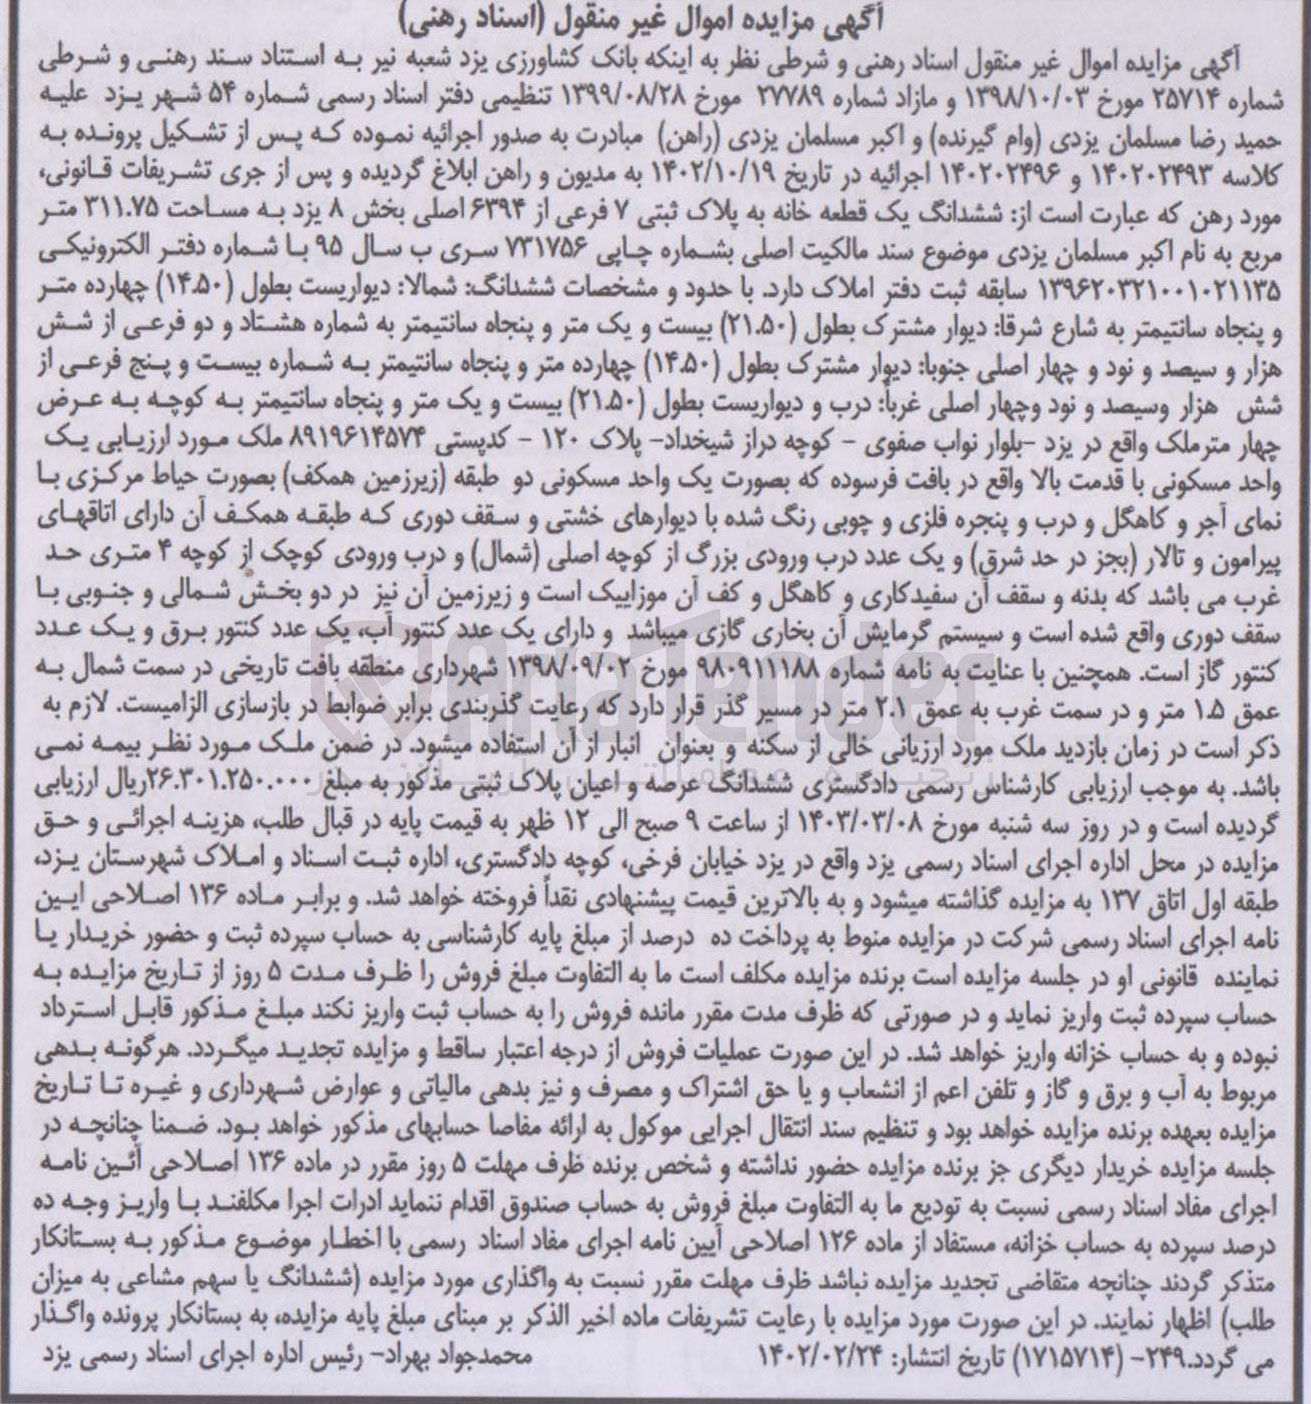 آگهی مزایده اموال غیر منقول (اسناد رهنی)
آگهی مزایده اموال غیر منقول اسناد رهنی و شرطی نظر به اینکه بانک کشاورزی یزد شعبه نیر به استناد سند رهنی و شرطی
شماره ۲۵۷۱۴ مورخ ۱۳۹۸/۱۰/۰۳ و مازاد شماره ۲۷۷۸۹ مورخ ۱۳۹۹/۰۸/۲۸ تنظیمی دفتر اسناد رسمی شماره ۵۴ شهر یزد علیه
حمید رضا مسلمان یزدی (وام گیرنده) و اکبر مسلمان یزدی (راهن) مبادرت به صدور اجرائیه نموده که پس از تشکیل پرونده به
کلاسه ۱۴۰۲۰۲۴۹۳ و ۱۴۰۲۰۲۴۹۶ اجرائیه در تاریخ ۱۴۰۲/۱۰/۱۹ به مدیون و راهن ابلاغ گردیده و پس از جری تشریفات قانونی،
مورد رهن که عبارت است از: ششدانگ یک قطعه خانه به پلاک ثبتی ۷ فرعی از ۶۳۹۴ اصلی بخش ۸ یزد به مساحت ۳۱۱.۷۵ متر
مربع به نام اکبر مسلمان یزدی موضوع سند مالکیت اصلی بشماره چاپی ۷۳۱۷۵۶ سری ب سال ۹۵ با شماره دفتر الکترونیکی
۱۳۹۶۲۰۳۲۱۰۰۱۰۲۱۱۳۵ سابقه ثبت دفتر املاک دارد. با حدود و مشخصات ششدانگ: شمالا: دیواریست بطول (۱۴.۵۰) چهارده متر
و پنجاه سانتیمتر به شارع شرقا: دیوار مشترک بطول (۲۱.۵۰) بیست و یک متر و پنجاه سانتیمتر به شماره هشتاد و دو فرعی از شش
هزار و سیصد و نود و چهار اصلی جنوبا: دیوار مشترک بطول (۱۴.۵۰) چهارده متر و پنجاه سانتیمتر به شماره بیست و پنج فرعی از
شش هزار وسیصد و نود وچهار اصلی غرباً: درب و دیواریست بطول (۲۱.۵۰) بیست و یک متر و پنجاه سانتیمتر به کوچه به عرض
چهار مترملک واقع در یزد -بلوار نواب صفوی - کوچه دراز شیخداد- پلاک ۱۲۰ - کدپستی ۸۹۱۹۶۱۴۵۷۴ ملک مورد ارزیابی یک
واحد مسکونی با قدمت بالا واقع در بافت فرسوده که بصورت یک واحد مسکونی دو طبقه (زیرزمین همکف) بصورت حیاط مرکزی با
نمای آجر و کاهگل و درب و پنجره فلزی و چوبی رنگ شده با دیوارهای خشتی و سقف دوری که طبقه همکف آن دارای اتاقهای
پیرامون و تالار (بجز در حد شرق) و یک عدد درب ورودی بزرگ از کوچه اصلی (شمال) و درب ورودی کوچک از کوچه ۴ متری حد
غرب می باشد که بدنه و سقف آن سفیدکاری و کاهگل و کف آن موزاییک است و زیرزمین آن نیز در دو بخش شمالی و جنوبی با
سقف دوری واقع شده است و سیستم گرمایش آن بخاری گازی میباشد و دارای یک عدد کنتور آب، یک عدد کنتور برق و یک عدد
کنتور گاز است. همچنین با عنایت به نامه شماره ۹۸۰۹۱۱۱۸۸ مورخ ۱۳۹۸/۰۹/۰۲ شهرداری منطقه بافت تاریخی در سمت شمال به
عمق ۱.۵ متر و در سمت غرب به عمق ۲.۱ متر در مسیر گذر قرار دارد که رعایت گذربندی برابر ضوابط در بازسازی الزامیست. لازم به
ذکر است در زمان بازدید ملک مورد ارزیانی خالی از سکنه و بعنوان انبار از آن استفاده میشود. در ضمن ملک مورد نظر بیمه نمی
باشد. به موجب ارزیابی کارشناس رسمی دادگستری ششدانگ عرصه و اعیان پلاک ثبتی مذکور به مبلغ ۲۶.۳۰۱.۲۵۰.۰۰۰ریال ارزیابی
گردیده است و در روز سه شنبه مورخ ۱۴۰۳/۰۳/۰۸ از ساعت ۹ صبح الی ۱۲ ظهر به قیمت پایه در قبال طلب، هزینه اجرائی و حق
مزایده در محل اداره اجرای اسناد رسمی یزد واقع در یزد خیابان فرخی، کوچه دادگستری، اداره ثبت اسناد و املاک شهرستان یزد،
طبقه اول اتاق ۱۳۷ به مزایده گذاشته میشود و به بالاترین قیمت پیشنهادی نقداً فروخته خواهد شد. و برابر ماده ۱۳۶ اصلاحی ایین
نامه اجرای اسناد رسمی شرکت در مزایده منوط به پرداخت ده درصد از مبلغ پایه کارشناسی به حساب سپرده ثبت و حضور خریدار یا
نماینده قانونی او در جلسه مزایده است برنده مزایده مکلف است ما به التفاوت مبلغ فروش را ظرف مدت ۵ روز از تاریخ مزایده به
حساب سپرده ثبت واریز نماید و در صورتی که ظرف مدت مقرر مانده فروش را به حساب ثبت واریز نکند مبلغ مذکور قابل استرداد
نبوده و به حساب خزانه واریز خواهد شد. در این صورت عملیات فروش از درجه اعتبار ساقط و مزایده تجدید میگردد. هرگونه بدهی
مربوط به آب و برق و گاز و تلفن اعم از انشعاب و یا حق اشتراک و مصرف و نیز بدهی مالیاتی و عوارض شهرداری و غیره تا تاریخ
مزایده بعهده برنده مزایده خواهد بود و تنظیم سند انتقال اجرایی موکول به ارائه مفاصا حسابهای مذکور خواهد بود. ضمنا چنانچه در
جلسه مزایده خریدار دیگری جز برنده مزایده حضور نداشته و شخص برنده ظرف مهلت ۵ روز مقرر در ماده ۱۳۶ اصلاحی آئین نامه
اجرای مفاد اسناد رسمی نسبت به تودیع ما به التفاوت مبلغ فروش به حساب صندوق اقدام ننماید ادرات اجرا مکلفند با واریز وجه ده
درصد سپرده به حساب خزانه، مستفاد از ماده ۱۲۶ اصلاحی آیین نامه اجرای مفاد اسناد رسمی با اخطار موضوع مذکور به بستانکار
متذکر گردند چنانچه متقاضی تجدید مزایده نباشد ظرف مهلت مقرر نسبت به واگذاری مورد مزایده (ششدانگ یا سهم مشاعی به میزان
طلب) اظهار نمایند. در این صورت مورد مزایده با رعایت تشریفات ماده اخیر الذکر بر مبنای مبلغ پایه مزایده، به بستانکار پرونده واگذار
می گردد.۲۴۹- (۱۷۱۵۷۱۴) تاریخ انتشار: ۱۴۰۲/۰۲/۲۴ محمدجواد بهراد- رئیس اداره اجرای اسناد رسمی یزد
AriaTender